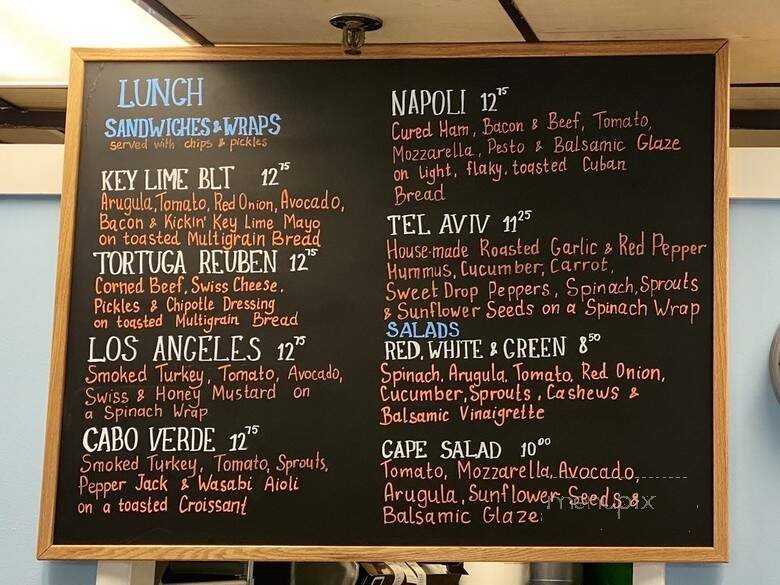 LUNCH
SANDWICHES & WRAPS
served with chips & pickles
KEY LIME BLT 12 75
Arugula, Tomato, Red Onion, Avocado,
Bacon & Kickin' Key Lime Mayo
on toasted Multigrain Bread
TORTUGA REUBEN 12 75
Corned Beef, Swiss Cheese,
Pickles & Chipotle Dressing
on toasted Multigrain Bread
LOS ANGELES 12 75
Smoked Turkey, Tomato, Avocado,
Swiss & Honey Mustard on
a Spinach Wrap
CABO VERDE 12 75
Smoked Turkey, Tomato, Sprouts,
Pepper Jack & Wasabi Aioli
on a toasted Croissant
NAPOLI 12 75
Cured Ham, Bacon & Beef, Tomato,
Mozzarella, Pesto & Balsamic Glaze
on light, flaky, toasted Cuban
Bread
TEL AVIV 11 25
House-made Roasted Garlic & Red Pepper
Hummus, Cucumber, Carrot,
Sweet Drop Peppers, Spinach, Sprouts
& Sunflower Seeds on a Spinach Wrap
SALADS
RED, WHITE & GREEN 8 50
Spinach, Arugula, Tomato, Red Onion,
Cucumber, Sprouts, Cashews &
Balsamic Vinaigrette
CAPE SALAD 10 00
Tomato, Mozzarella, Avocado,
Arugula, Sunflower Seeds &
Balsamic Glaze
menupix